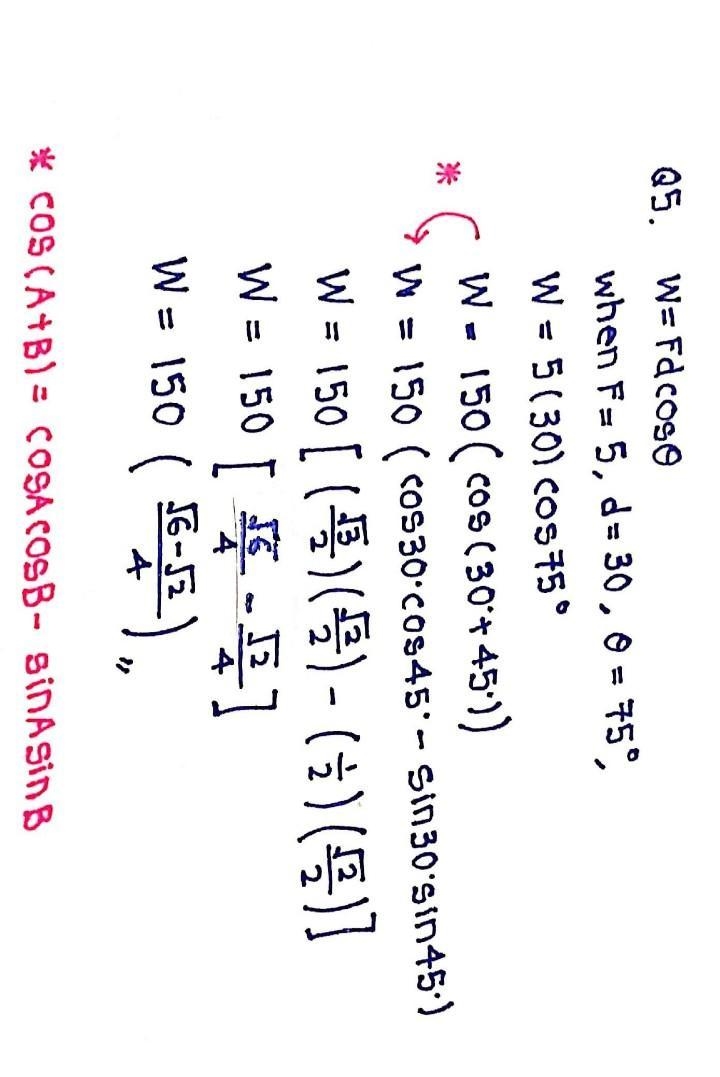 Q5. W = Fdcosθ
when F = 5, d = 30, θ = 75°,
W = 5(30) cos75°
W = 150 (cos(30°+45°))
*
W = 150 (cos30°cos45° - sin30°sin45°)
W = 150 [(√3/2)(√2/2) - (1/2)(√2/2)]
W = 150 [√6/4 - √2/4]
W = 150 (√6-√2/4)〃
* cos(A+B) = cosAcosB - sinAsinB